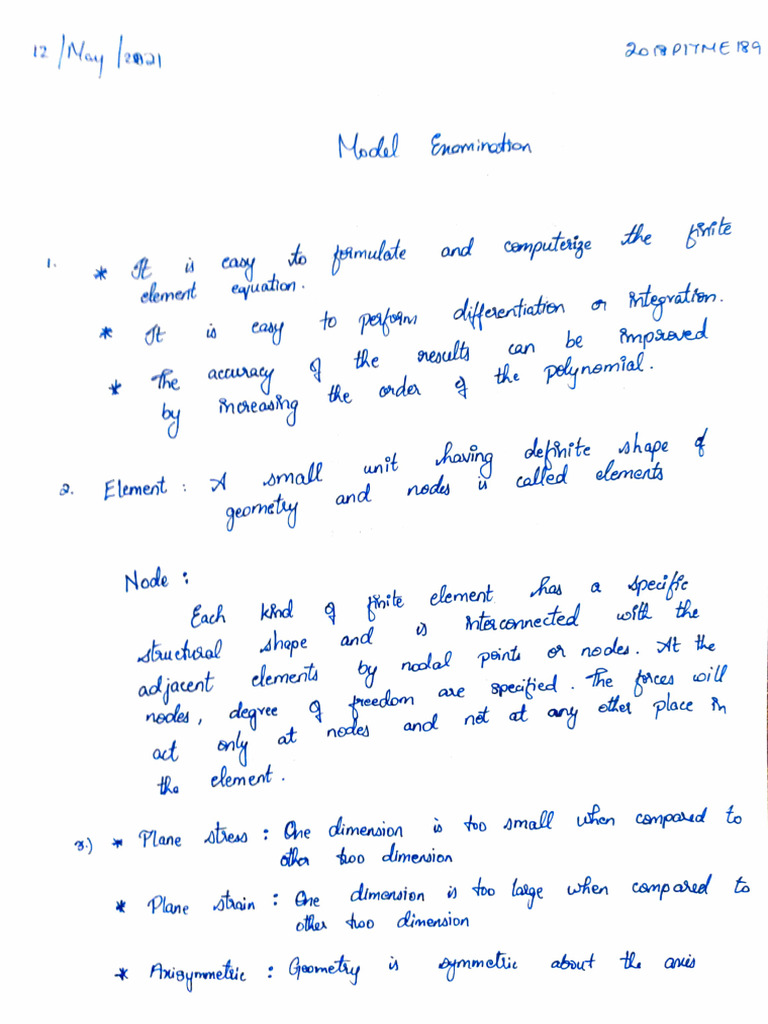 12/May/2021
2018PITME189
Model Examination
1. * It is easy to formulate and computerize the finite
element equation.
* It is easy to perform differentiation or integration.
* The accuracy of the results can be improved
by increasing the order of the polynomial.
2. Element : A small unit having definite shape of
geometry and nodes is called elements
Node :
Each kind of finite element has a specific
structural shape and is interconnected with the
adjacent elements by nodal points or nodes. At the
nodes, degree of freedom are specified. The forces will
act only at nodes and not at any other place in
the element.
3.) * Plane stress : One dimension is too small when compared to
other two dimension
* Plane strain : One dimension is too large when compared to
other two dimension
* Axisymmetric : Geometry is symmetric about the axis